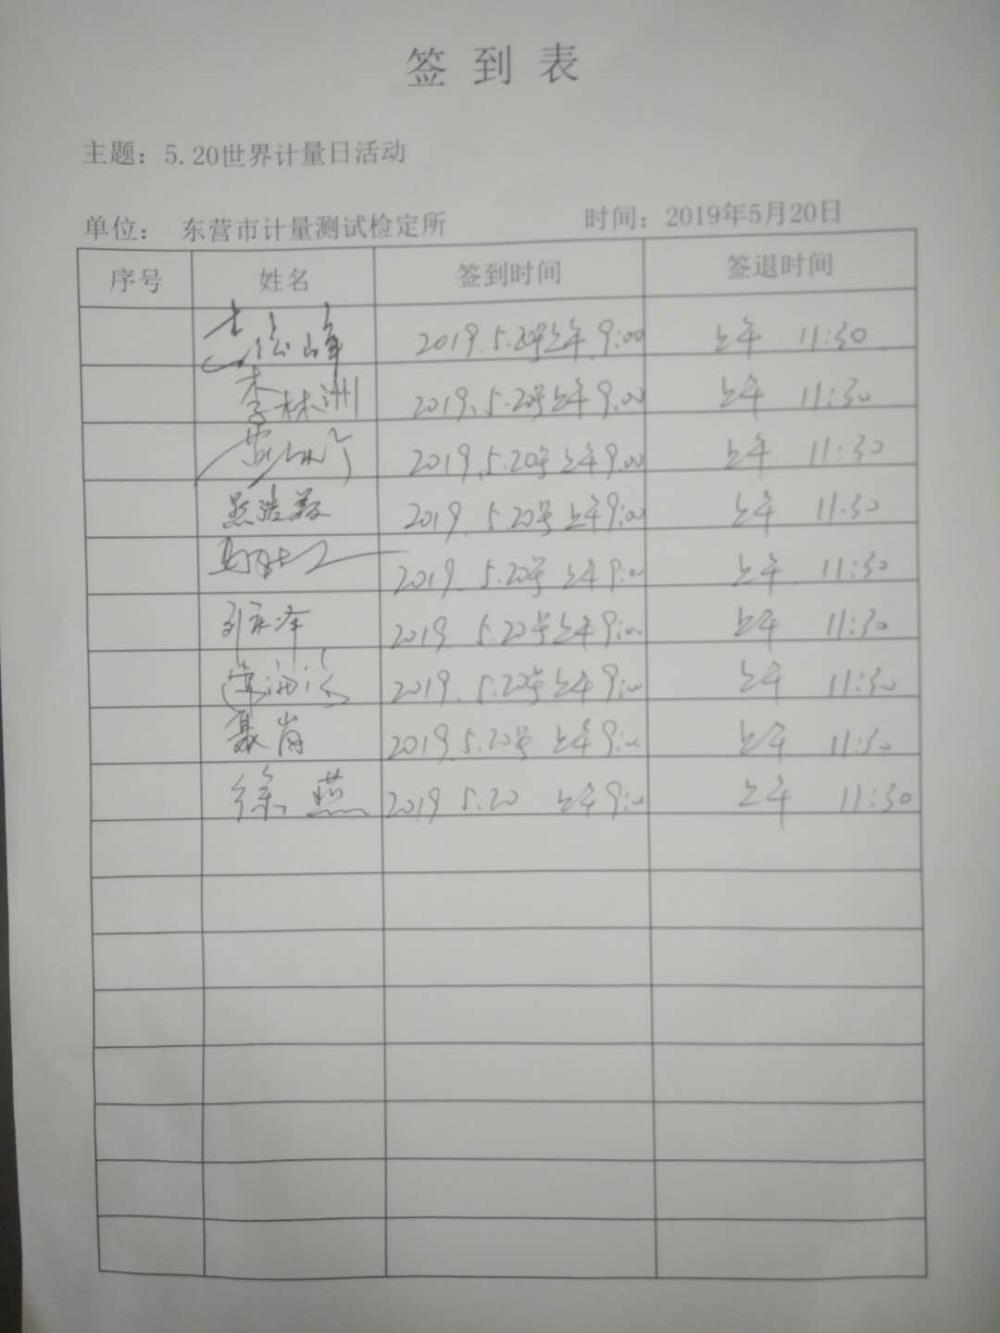 签到表
主题：5.20世界计量日活动
单位： 东营市计量测试检定所 时间：2019年5月20日
序号 姓名 签到时间 签退时间
峰 2019.5.20号上午9:00 上午 11:30
李林洲 2019.5.20号上午9:00 上午 11:30
2019.5.20号上午9:00 上午 11:30
2019 5.20号上午9:00 上午 11:30
2019 5.20号上午9:00 上午 11:30
2019 5.20号上午9:00 上午 11:30
2019.5.20号上午9:00 上午 11:30
聂岗 2019 5.20号 上午9:00 上午 11:30
徐燕 2019 5.20 上午9:00 上午 11:30